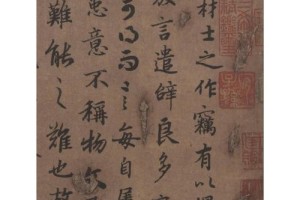 材士之作竊有以得
放言遣辭良多
可得而言每自屬
患意不稱物文
難能之難也故